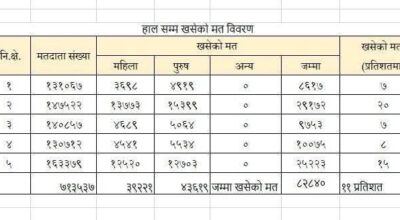 हाल सम्म खसेको मत विवरण
नि.क्षे. मतदाता संख्या खसेको मत खसेको मत
महिला पुरुष अन्य जम्मा (प्रतिशतमा
१ १३१०६७ ३६९८ ४९१९ ० ८६१७ ७
२ १४७५२२ १३७७३ १५३९९ ० २९१७२ २०
३ १४०८५७ ४६८९ ५०६४ ० ९७५३ ७
४ १३०७१२ ४५४१ ५५३४ ० १००७५ ८
५ १६३३७९ १२५२० १२७०३ ० २५२२३ १५
७१३५३७ ३९२२१ ४३६१९ जम्मा खसेको मत ८२८४० ११ प्रतिशत